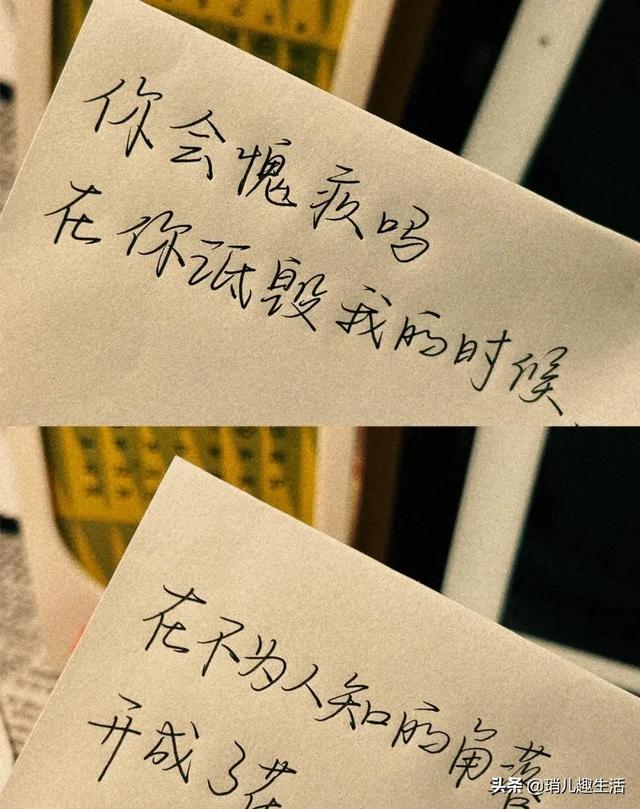 你会愧疚吗
在你诋毁我的时候、
在不为人知的角落
开成了花
头条@琑儿趣生活